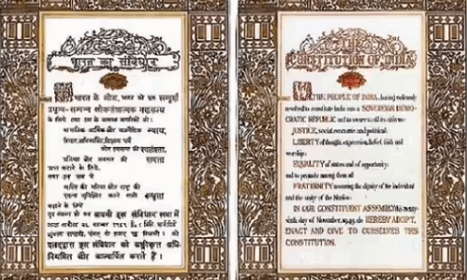 भारत का संविधान
भारत के लोग, भारत को एक सम्पूर्ण
लोकतंत्रात्मक गणराज्य
के लिए, तथा उसके समस्त नागरिकों को:
सामाजिक, आर्थिक और राजनैतिक न्याय,
विचार, अभिव्यक्ति, विश्वास, धर्म
और उपासना की स्वतंत्रता,
प्रतिष्ठा और अवसर की समता
प्राप्त कराने के लिये,
तथा उन सब में
व्यक्ति की गरिमा और राष्ट्र की
एकता सुनिश्चित करने वाली बन्धुता
बढ़ाने के लिये
अपनी इस संविधान सभा में
एतद्द्वारा इस संविधान को अंगीकृत, अधि-
नियमित और आत्मार्पित करते हैं।
THE
CONSTITUTION OF INDIA
WE, THE PEOPLE OF INDIA, having solemnly
resolved to constitute India into a SOVEREIGN DEMO-
CRATIC REPUBLIC and to secure to all its citizens:
JUSTICE, social, economic and political;
LIBERTY of thought, expression, belief, faith and
worship;
EQUALITY of status and of opportunity;
and to promote among them all
FRATERNITY assuring the dignity of the individual
and the unity of the Nation;
IN OUR CONSTITUENT ASSEMBLY this twenty-
sixth day of November, 1949, do HEREBY ADOPT,
ENACT AND GIVE TO OURSELVES THIS
CONSTITUTION.